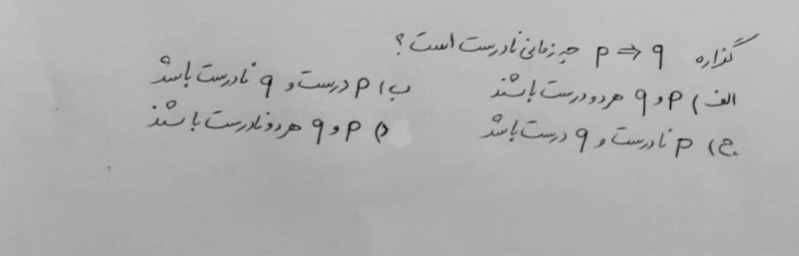 گزاره p ⇒ q چه زمانی نادرست است؟
الف) p و q هر دو درست باشند ب) p درست و q نادرست باشد
ج) p نادرست و q درست باشد د) p و q هر دو نادرست باشند